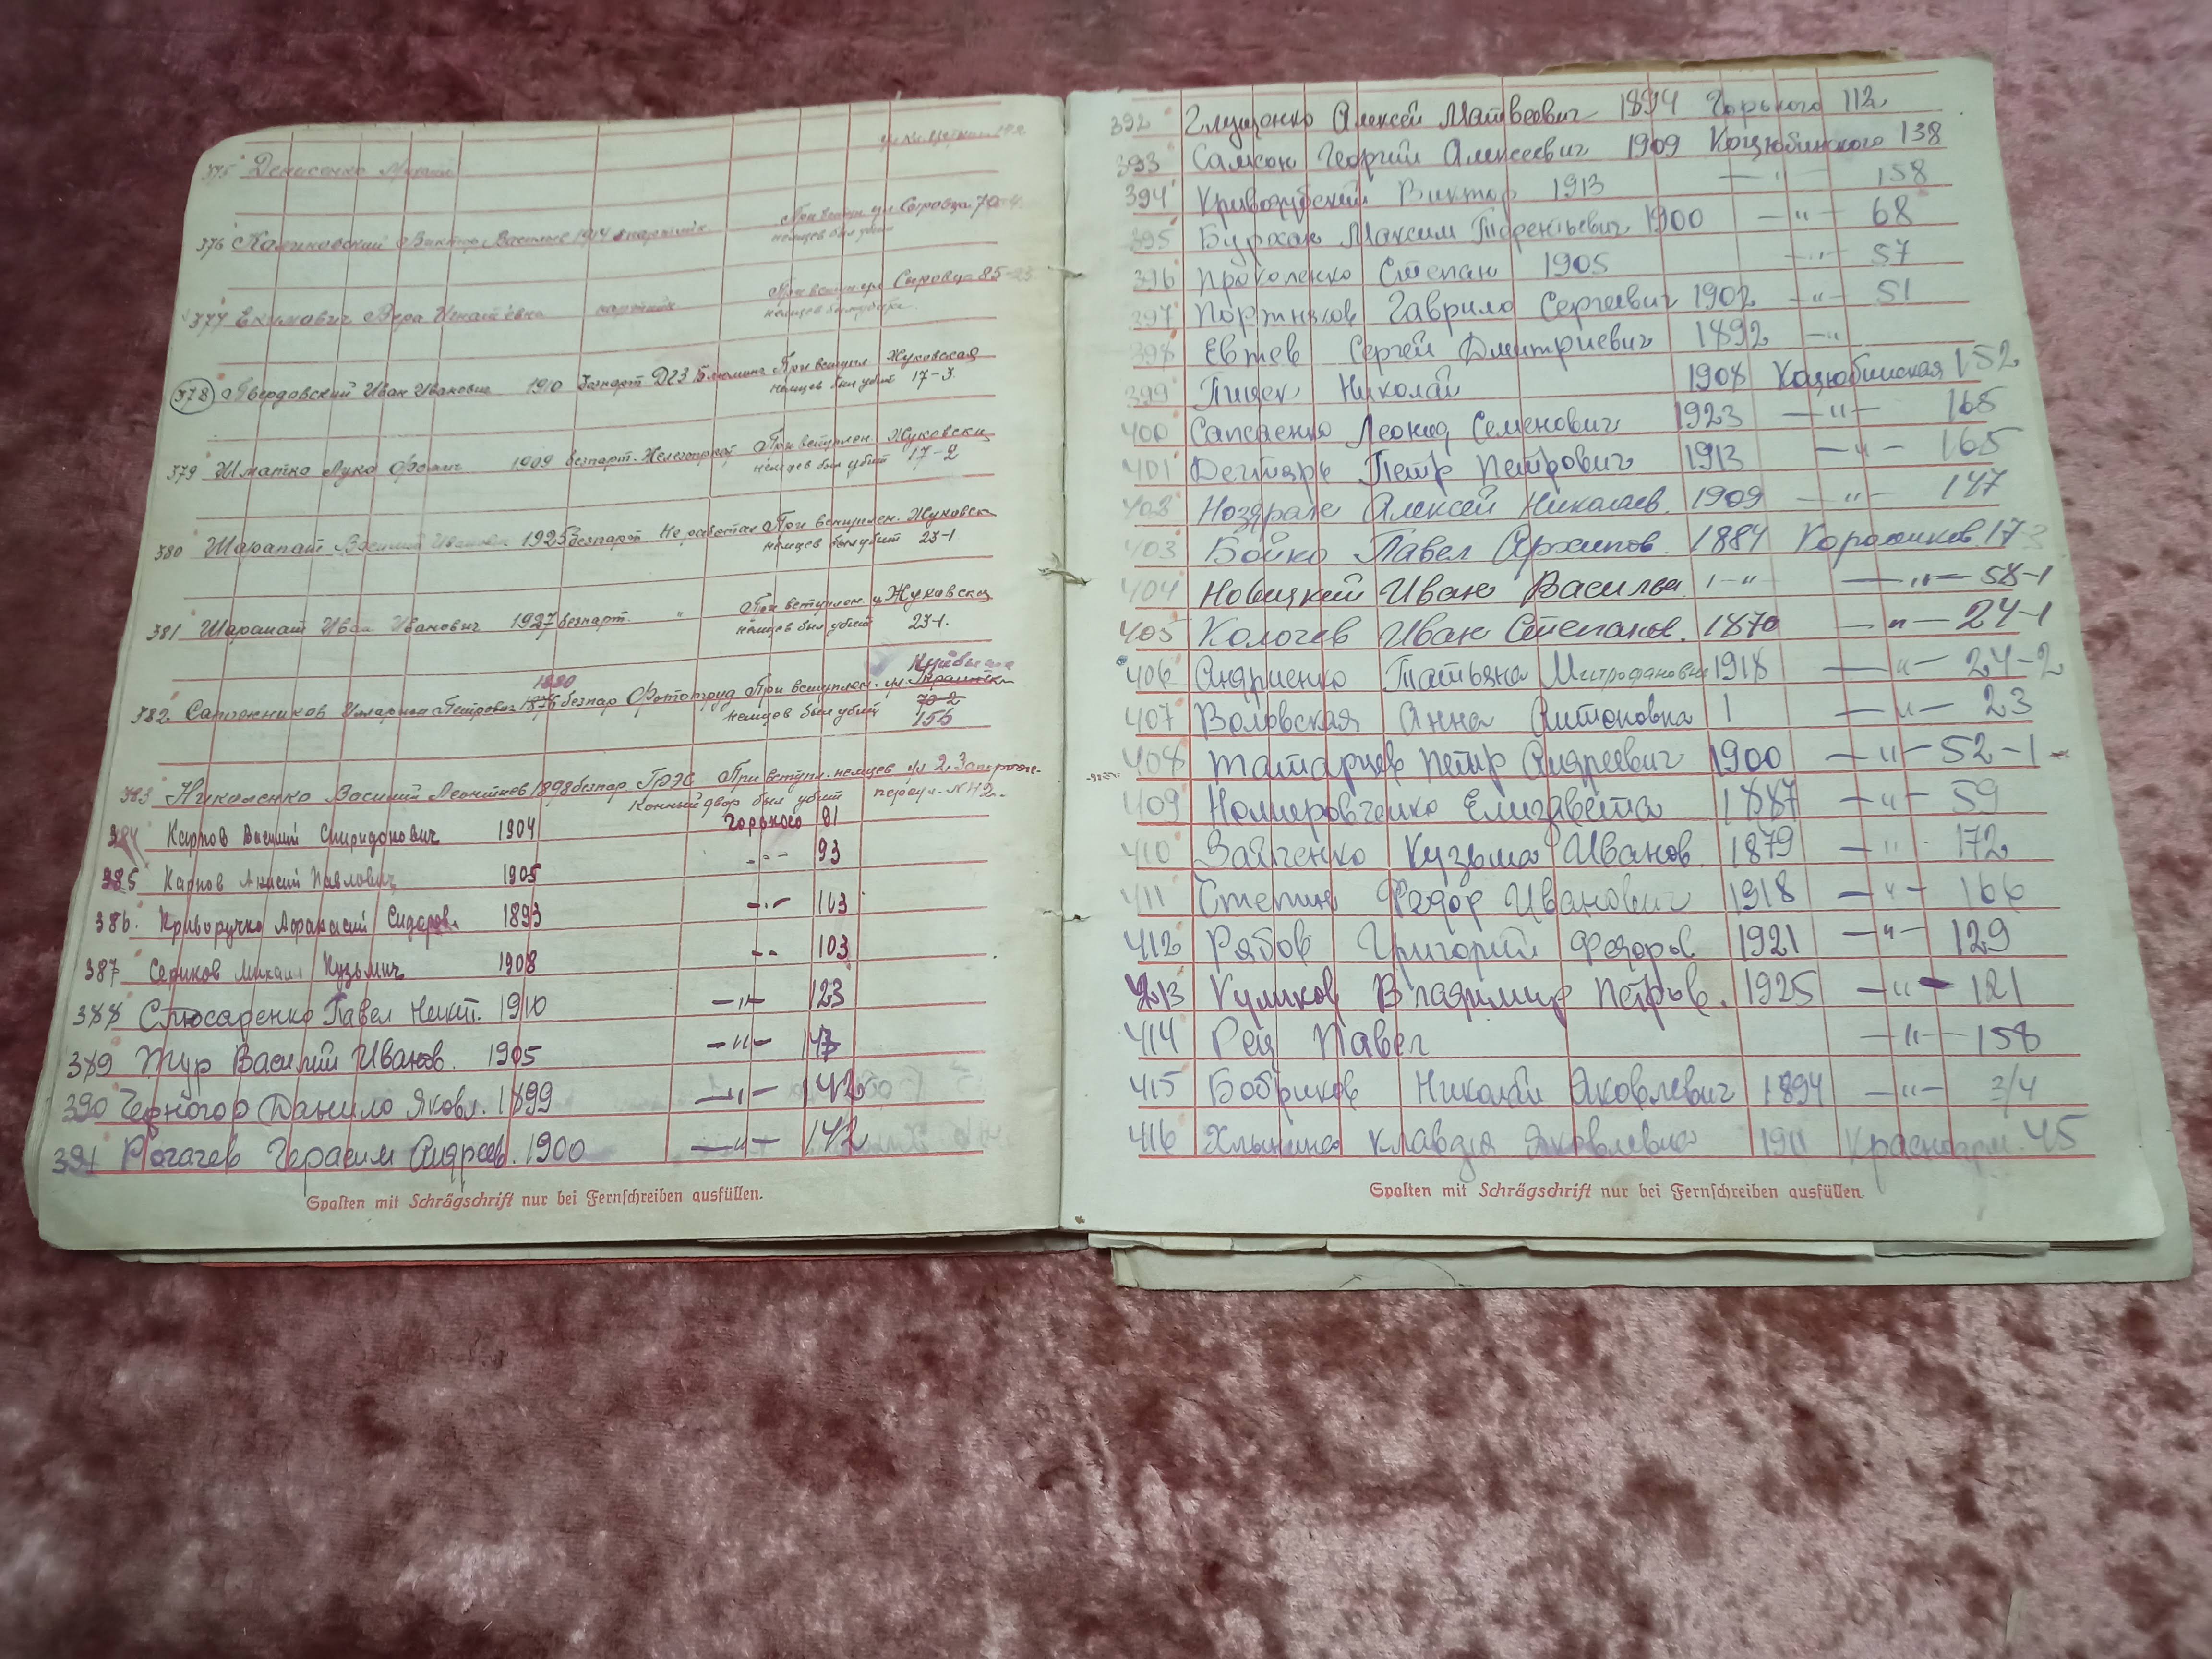 375 Денисенко
376 Калиновский Виктор 1914 При вступ. ул. Сыровца 70
немцев был убит
377 Екимович Вера Игнатевна При вступ. Сыровца 85
немцев
378 Твердовский Иван Иванович 1910 безпарт. При вступл Жуковская
немцев был убит 17-3
379 Лука Фомич 1909 безпарт. При вступлен. Жуковска
немцев был убит 17-2
380 Шарапат Василий Иванович 1925 безпарт При вступлен. Жуковск
немцев был убит 23-1
381 Шарапат Иван Иванович 1927 безпарт. " При вступлен. ул Жуковска
немцев был убит 23-1.
1880
382 Сапожников Илларион Петрович 1876 безпар При вступлен. ул.
немцев был убит 70-2
156
383 Николенко Василий Леонтиев 1898 безпар ГРЭС При вступл. немцев ул 2. Запорож-
Конный двор был убит переул. №42.
384 Карпов Василий Спиридонович 1904 Горького 81
385 Карпов Павлович 1905 - - - 93
386. Криворучко Афанасий Сидоров. 1893 - - - 103
387 Сериков Михаил Кузьмич 1908 - - 103
388 Слюсаренко Павел Никит. 1910 — " — 123
389 Жур Василий Иванов. 1905 — " —
390 Черногор Данило Яковл. 1899 — " — 142
391 Рогачев Герасим Андреев. 1900 — " — 142
Spalten mit Schrägschrift nur bei Fernschreiben ausfüllen.
392 Глущенко Алексей Матвеевич 1894 Горького 112
393 Самсон Георгий Алексеевич 1909 Коцюбинского 138
394 Виктор 1913 — " — 158
395 Бурхан Максим Терентьевич 1900 — " — 68
396 Прокопенко Степан 1905 — " — 57
397 Портняков Гаврило Сергеевич 1902 — " — 51
398 Евтев Сергей Дмитриевич 1892 — "
399 Николай 1908 Коцюбинская 152
400 Леонид Семенович 1923 — " — 165
401 Дегтярь Петр Петрович 1913 — " — 165
402 Алексей Николаев. 1909 — " — 147
403 Бойко Павел Архипов. 1884 173
404 Новицкий Иван Василье — " — — " — 58-1
405 Кологев Иван Степанов. 1870 — " — 24-1
406 Андриенко Татьяна Митрофановна 1918 — " — 24-2
407 Воловская Анна Антоновна 1 — " — 23
408 Татарцев Петр Андреевич 1900 — " — 52-1
409 Номеровченко Елизавета 1887 — " — 59
410 Заяченко Кузьма Иванов. 1879 — " — 172
411 Федор Иванович 1918 — " — 166
412 Рябов Григорий Федоров 1921 — " — 129
413 Куликов Владимир Петров. 1925 — " — 121
414 Рец Павел — " — 158
415 Бобриков Николай Яковлевич 1894 — " —
416 Клавдя Яковлевна 1911 Красноарм. 45
Spalten mit Schrägschrift nur bei Fernschreiben ausfüllen.